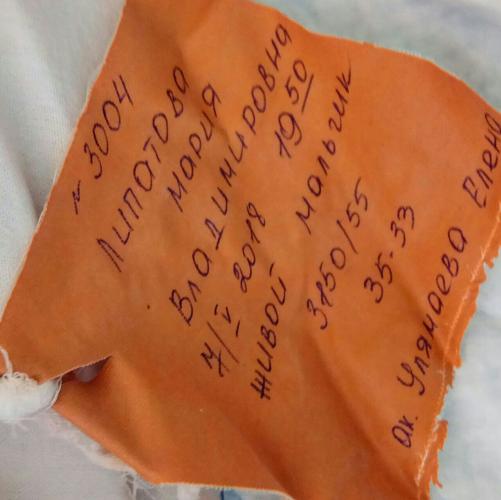 № 3004
ЛИПАТОВА
МАРИЯ
ВЛАДИМИРОВНА
7/V 2018 19 50
ЖИВОЙ МАЛЬЧИК
3150/55
35-33
Ак. Улямаева Елена